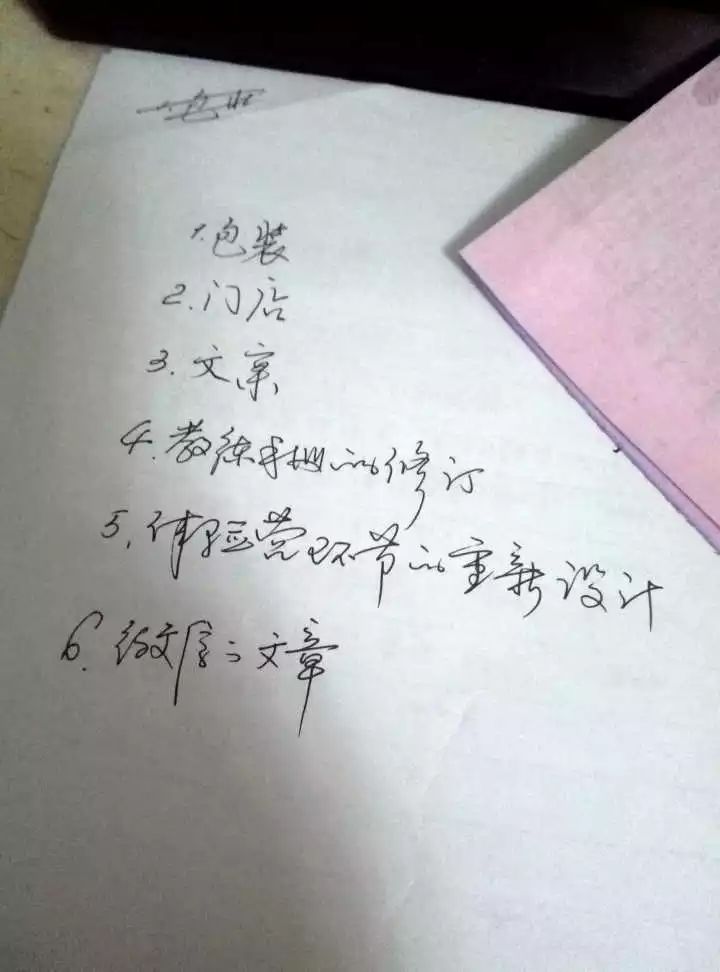 1.包装
2.门店
3.文案
4.教练手册的修订
5.体验营环节的重新设计
6.文章